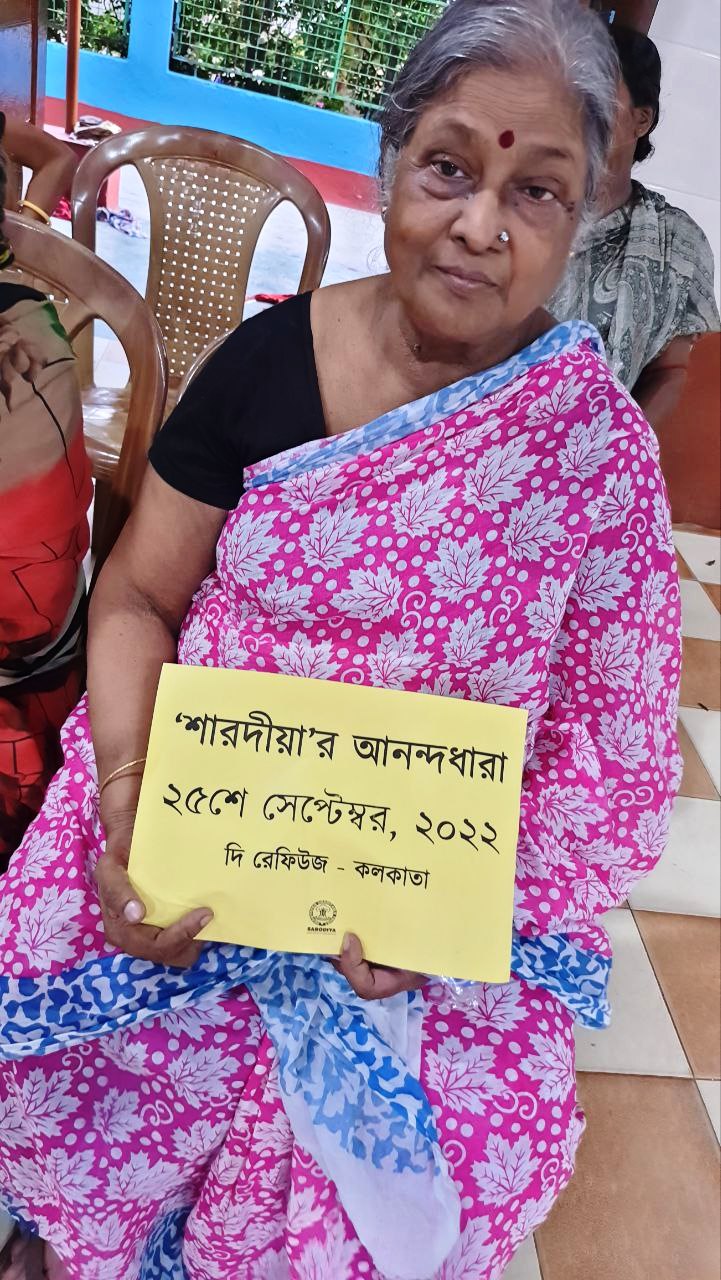 ‘শারদীয়া’র আনন্দধারা
২৫শে সেপ্টেম্বর, ২০২২
দি রেফিউজ - কলকাতা
SARODIYA